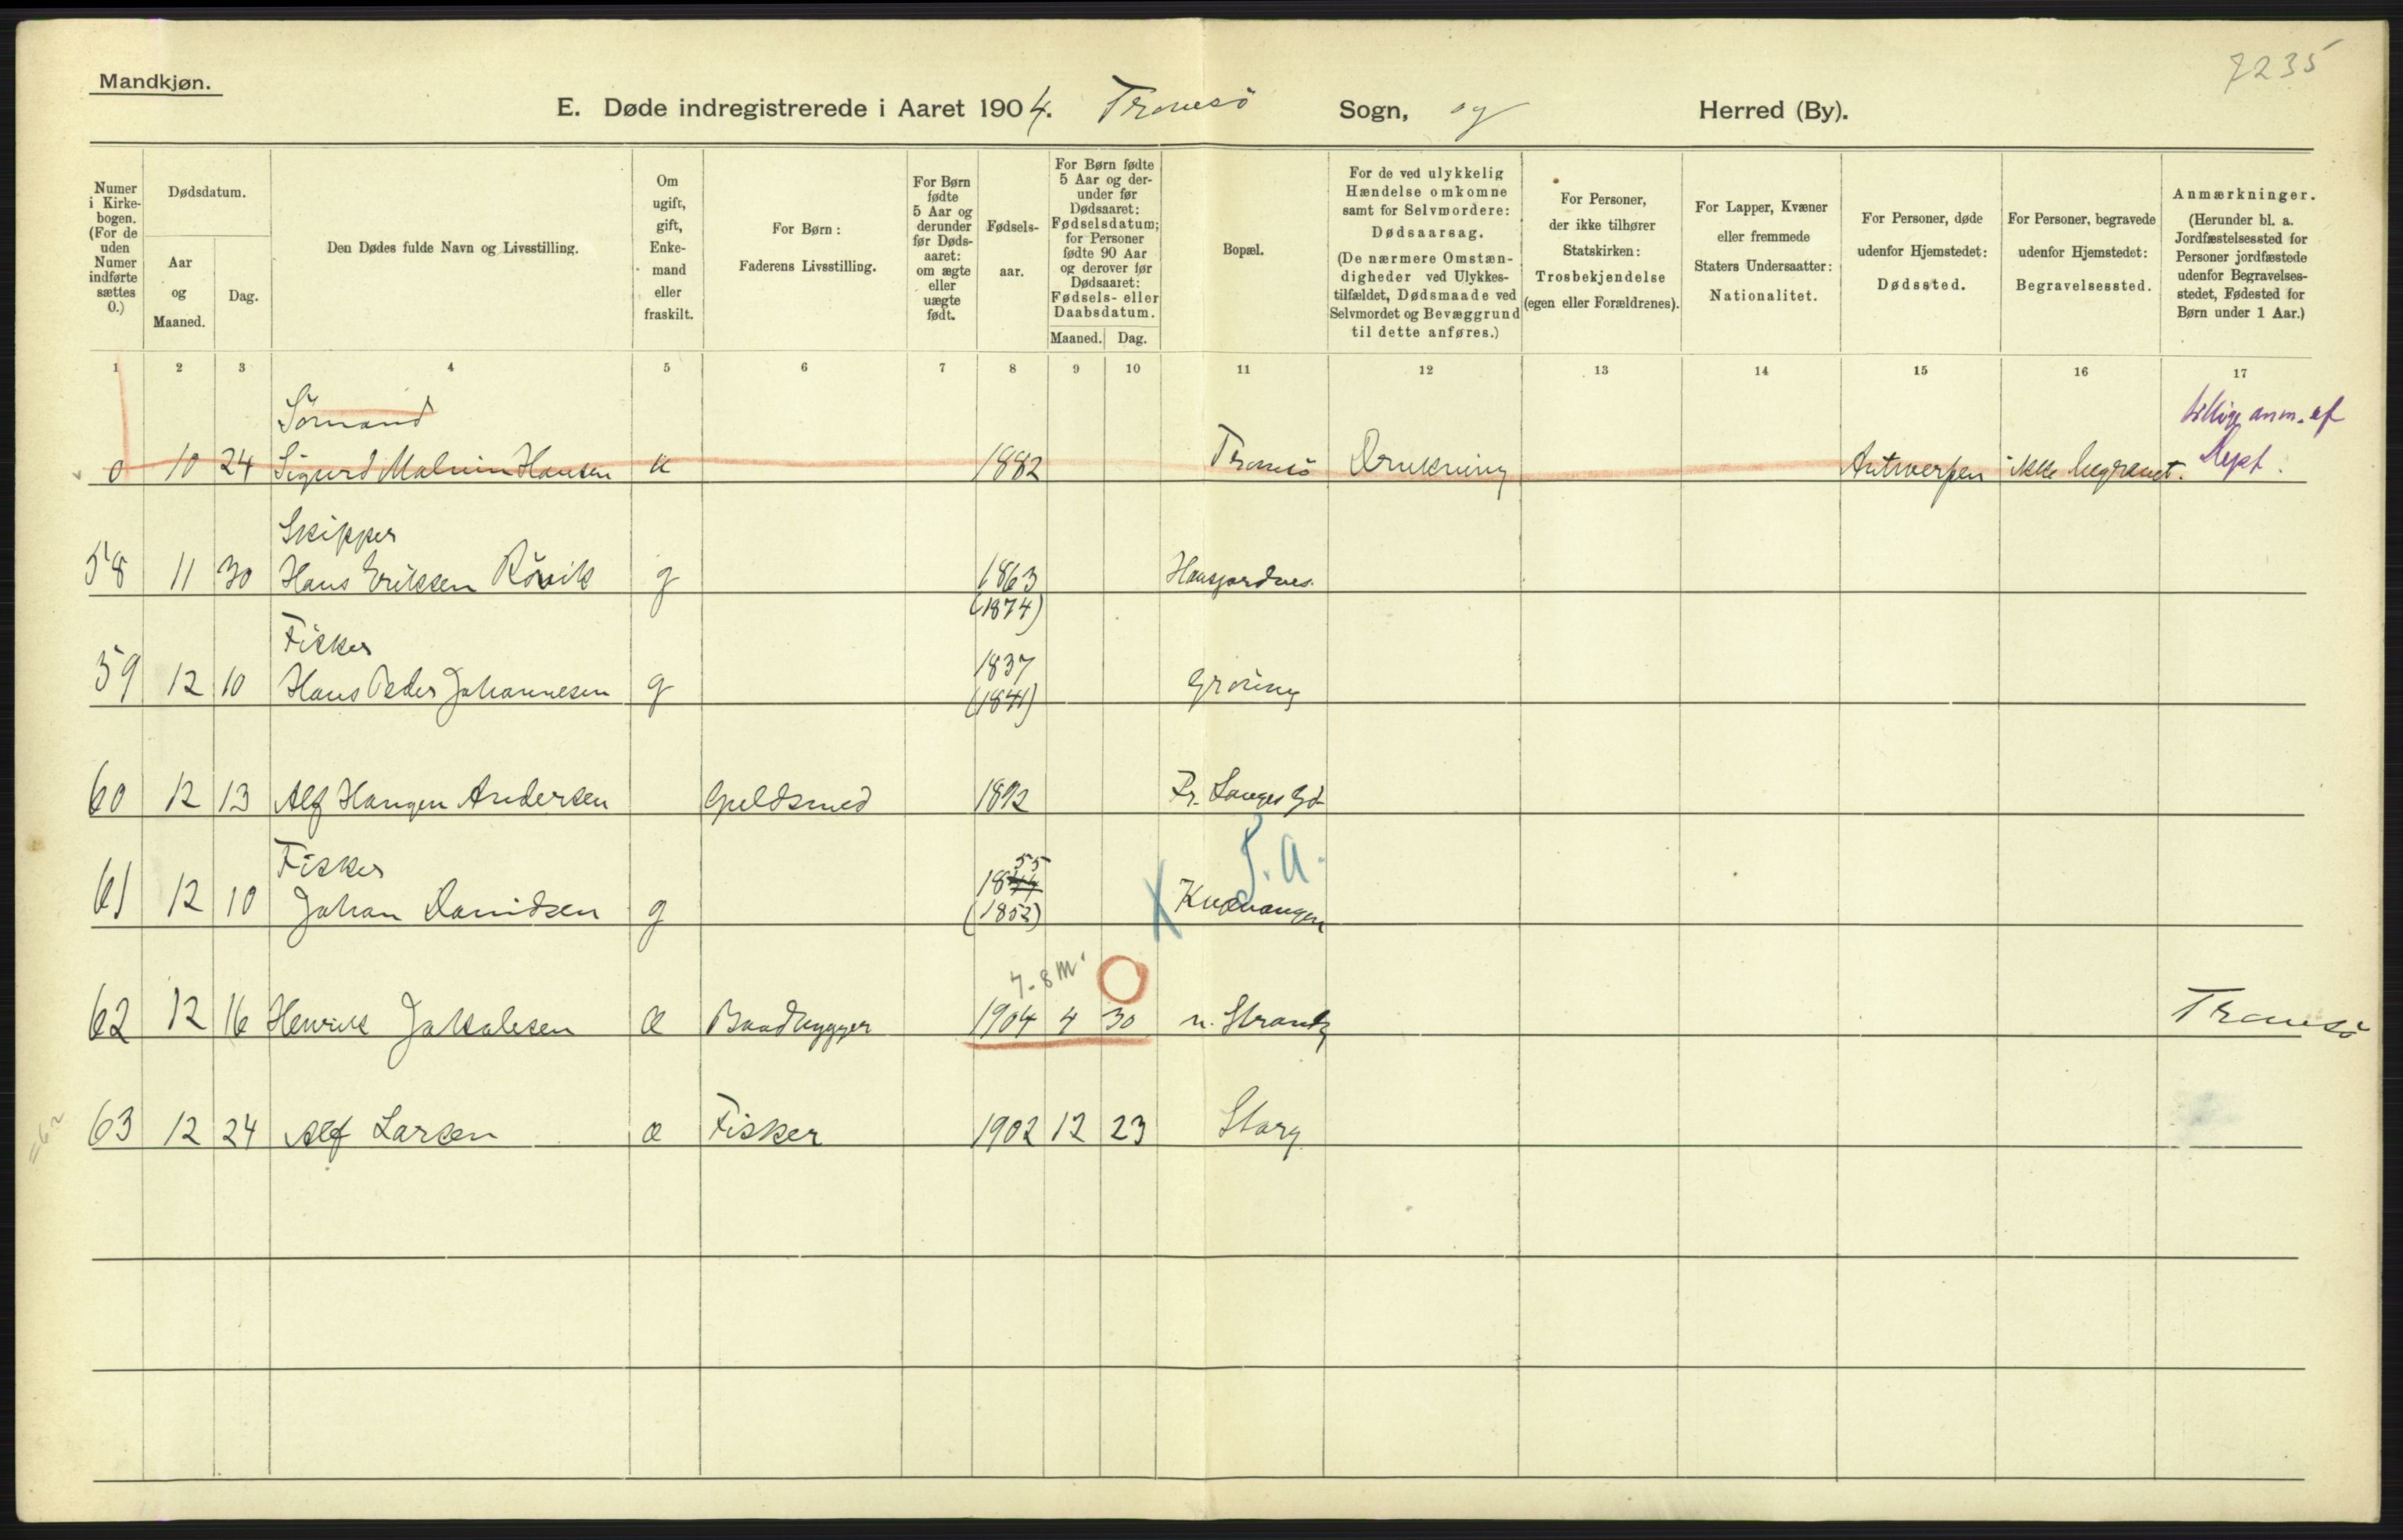 7235
Mandkjøn.
E. Døde indregistrerede i Aaret 1904. Tromsö Sogn, og Herred (By).
Numer i Kirkebogen. (For de uden Numer indførte sættes 0.)
Dødsdatum.
Aar og Maaned.
Dag.
Den Dødes fulde Navn og Livsstilling.
Om ugift, gift, Enkemand eller fraskilt.
For Børn: Faderens Livsstilling.
For Børn fødte 5 Aar og derunder før Dødsaaret: om ægte eller uægte født.
Fødselsaar.
For Børn fødte 5 Aar og derunder før Dødsaaret: Fødselsdatum; for Personer fødte 90 Aar og derover før Dødsaaret: Fødsels- eller Daabsdatum.
Maaned. Dag.
Bopæl.
For de ved ulykkelig Hændelse omkomne samt for Selvmordere: Dødsaarsag. (De nærmere Omstændigheder ved Ulykkestilfældet, Dødsmaade ved Selvmordet og Bevæggrund til dette anføres.)
For Personer, der ikke tilhører Statskirken: Trosbekjendelse (egen eller Forældrenes).
For Lapper, Kvæner eller fremmede Staters Undersaatter: Nationalitet.
For Personer, døde udenfor Hjemstedet: Dødssted.
For Personer, begravede udenfor Hjemstedet: Begravelsessted.
Anmærkninger. (Herunder bl. a. Jordfæstelsessted for Personer jordfæstede udenfor Begravelsesstedet, Fødested for Børn under 1 Aar.)
1 2 3 4 5 6 7 8 9 10 11 12 13 14 15 16 17
Sömand
0 10 24 Sigurd Malvin Hansen u 1882 Tromsö Drukning Antwerpen ikke begravet. anm. af
Skipper
58 11 30 Hans Eriksen Rövik g 1863 (1874) Hansjordnes.
Fisker
59 12 10 Hans Peder Johannesen g 1837 (1841) Gröning
60 12 13 Alf Haugen Andersen Guldsmed 1892 Fr. Langes Gd
Fisker
61 12 10 Johan Danidsen g 1844 55 (1852) X Kvænangen
7-8 m.
62 12 16 Henrik Jakobsen æ Baadbygger 1904 4 30 n. Strandg Tromsö
63 12 24 Alf Larsen æ Fisker 1902 12 23 Storg.
=62